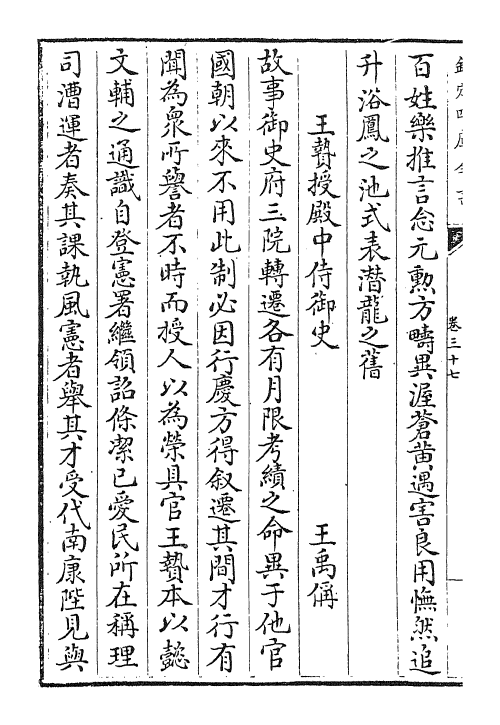 百姓樂推言念元勲方疇異渥蒼黄遇害良用憮然追
升浴鳳之池式表潜龍之舊
王贄授殿中侍御史 王禹偁
故事御史府三院轉遷各有月限考績之命異于他官
國朝以來不用此制必因行慶方得叙遷其間才行有
聞為衆所譽者不時而授人以為榮具官王贄本以懿
文輔之通識自登憲署繼領詔條潔已愛民所在稱理
司漕運者奏其課執風憲者舉其才受代南康陛見與
卷三十七